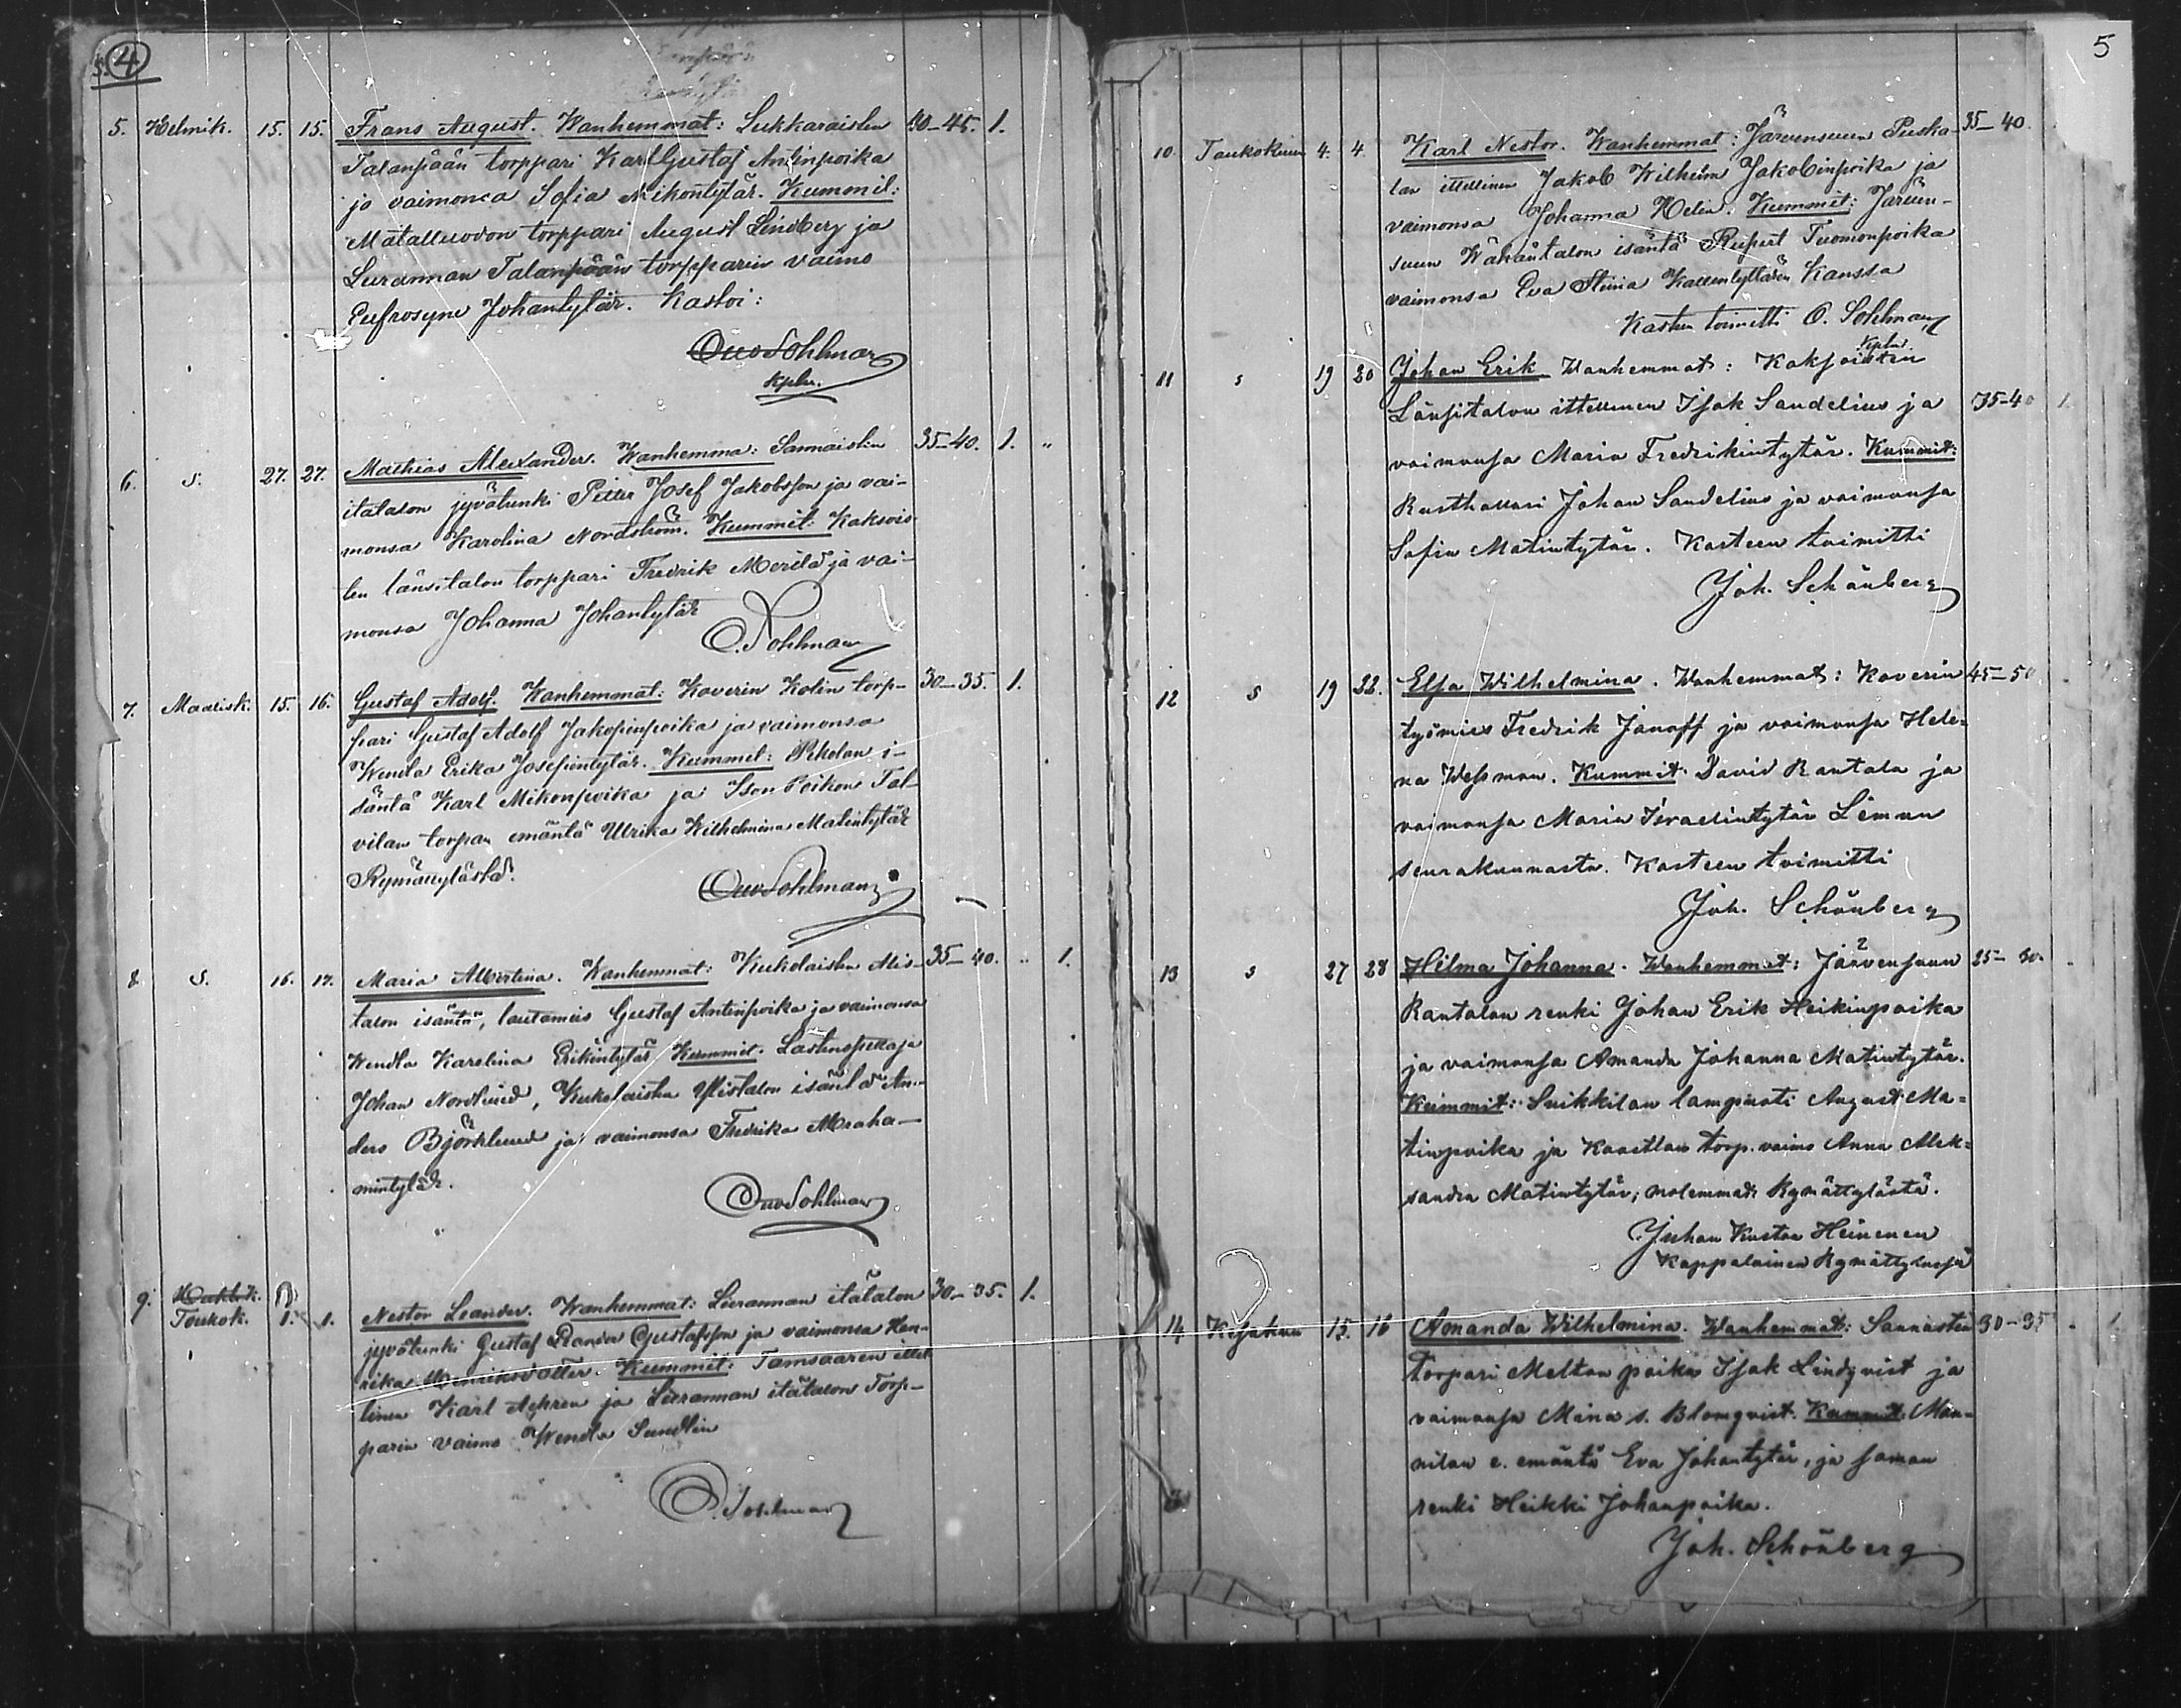 4
5. Helmik. 15. 15. Frans August. Wanhemmat: Lukkaraisten 40-45. 1.
Talanpään torppari Karl Gustaf Antinpoika
ja vaimonsa Sofia Mikontytär. Kummit:
torppari August Lindberg ja
Lurannan Talanpään torpparin vaimo
Eufrosyne Johantytär. Kastoi:
Otto Sohlman
Kpln.
6. s. 27. 27. Mathias Alexander. Wanhemma: Sannaisten 35-40. 1. "
itätalon jyvätunki Petter Josef Jakobsson ja vai-
monsa Karolina Nordström. Kummit: Kaksois
ten länsitalon torppari Fredrik Merilä ja vai-
monsa Johanna Johantytär
O. Sohlman
7. Maalisk. 15. 16. Gustaf Adolf. Wanhemmat: Kaverin Kolin torp- 30-35. 1.
pari Gustaf Adolf Jakopinpoika ja vaimonsa
Wendla Erika Josefintytär. Kummit: i-
säntä Karl Mikonpoika ja Ison Poikon Tal-
vilan torpan emäntä Ulrika Wilhelmina Matintytär
Rymättylästä.
Otto Sohlman
8. s. 16. 17. Maria Albertina. Wanhemmat: Kukolaisten Alis- 35-40. " 1.
talon isäntä, lautamies Gustaf Antinpoika ja vaimonsa
Wendla Karolina Erikintytär Kummit. Lastenopettaja
Johan Nordlund, Kukolaisten Ylistalon isäntä An-
ders Björklund ja vaimonsa Fredrika Abraha-
mintytär.
Otto Sohlman
9. Huhtik.
Toukok. 1. 1. Nestor Leander. Wanhemmat: Lurannan itätalon 30-35. 1.
jyvätunki Gustaf Gustafsson ja vaimonsa Hen-
rika Henriksdotter. Kummit: Tamsaaren ittel
linen Karl ja Lurannan itätalon Torp-
parin vaimo Wendla Sundlin
O. Sohlman
5
10 Toukokuun 4. 4. Karl Nestor. Wanhemmat: Järvensuun Puska- 35-40.
lan ittellinen Jakob Wilhelm Jakobinpoika ja
vaimonsa Johanna Helin. Kummit: Järven-
suun Wähäntalon isäntä Rupert Tuomonpoika
vaimonsa Eva Stiina Kallentyttären Kanssa
Kasteen toimitti O. Sohlman
Kpln.
11 s 19 20 Johan Erik Wanhemmat: Kaksoisten
Länsitalon ittellinen Isak Sandelius ja 35-40 1.
vaimonsa Maria Fredrikintytär. Kummit:
Rusthollari Johan Sandelius ja vaimonsa
Sofia Matintytär. Kasteen toimitti
Joh. Schönberg
12 s 19 22. Elsa Wilhelmina. Wanhemmat: Kaverin 45-50
työmies Fredrik Janoff ja vaimonsa Hele-
na Wessman. Kummit: David Rantala ja
vaimonsa Maria Israelintytär Lemun
seurakunnasta. Kasteen toimitti
Joh. Schönberg
13 s 27 28 Hilma Johanna. Wanhemmat: Järvensuun 25-30.
Rantalan renki Johan Erik Heikinpoika
ja vaimonsa Amanda Johanna Matintytär.
Kummit: Suikkilan lampuoti August Ma-
tinpoika ja torp. vaimo Anna Alek-
sandra Matintytär, molemmat Rymättylästä.
Juhan Kustaa Heinonen
Kappalainen Rymättylässä
14 Kesäkuu 15. 16 Amanda Wilhelmina. Wanhemmat: Sannasten 30-35 " 1.
torpari Meltan poika Isak Lindqvist ja
vaimonsa Mina s. Blomqvist. Kummit: Man-
nilan e. emäntä Eva Johantytär, ja saman
renki Heikki Johanpoika.
Joh. Schönberg